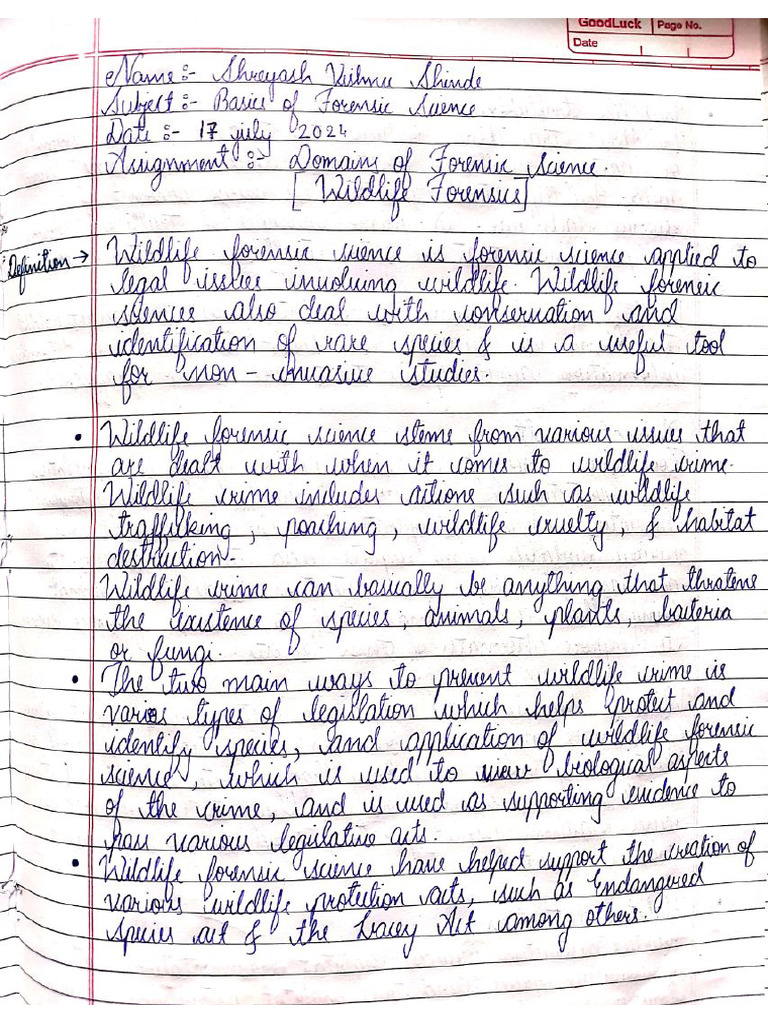 GoodLuck Page No.
Date
Name :- Shreyash Shinde
Subject :- Basics of Forensic Science
Date :- 17 july 2024
Assignment :- Domains of Forensic Science.
[ Wildlife Forensics]
Definition → Wildlife forensic science is forensic science applied to
legal issues involving wildlife. Wildlife forensic
sciences also deal with conservation and
identification of rare species & is a useful tool
for non-invasive studies.
• Wildlife forensic science stems from various issues that
are dealt with when it comes to wildlife crime.
Wildlife crime includes actions such as wildlife
trafficking, poaching, wildlife cruelty, & habitat
destruction.
Wildlife crime can basically be anything that thratens
the existence of species, animals, plants, bacteria
or fungi.
• The two main ways to prevent wildlife crime is
various types of legislation which helps protect and
identify species, and application of wildlife forensic
science, which is used to biological aspects
of the crime, and is used as supporting evidence to
pass various legislative acts.
• Wildlife forensic science have helped support the creation of
various wildlife protection acts, such as Endangered
species act & the Lacey Act among others.